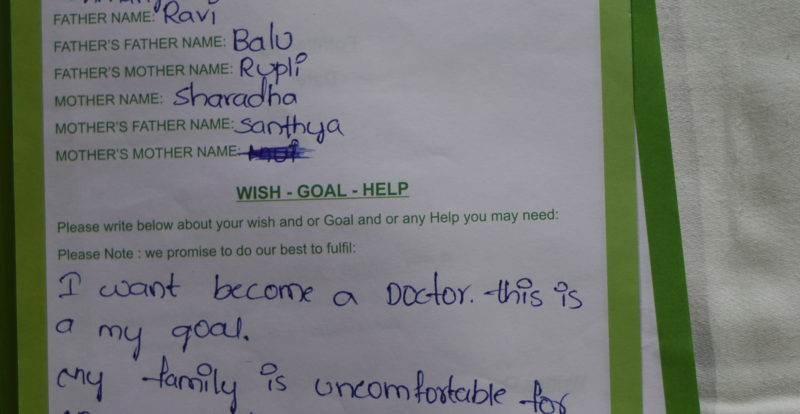 FATHER NAME: Ravi
FATHER'S FATHER NAME: Balu
FATHER'S MOTHER NAME: Rupli
MOTHER NAME: Sharadha
MOTHER'S FATHER NAME: Santhya
MOTHER'S MOTHER NAME:
WISH - GOAL - HELP
Please write below about your wish and or Goal and or any Help you may need:
Please Note : we promise to do our best to fulfil:
I want become a Doctor. this is
a my goal.
my family is uncomfortable for